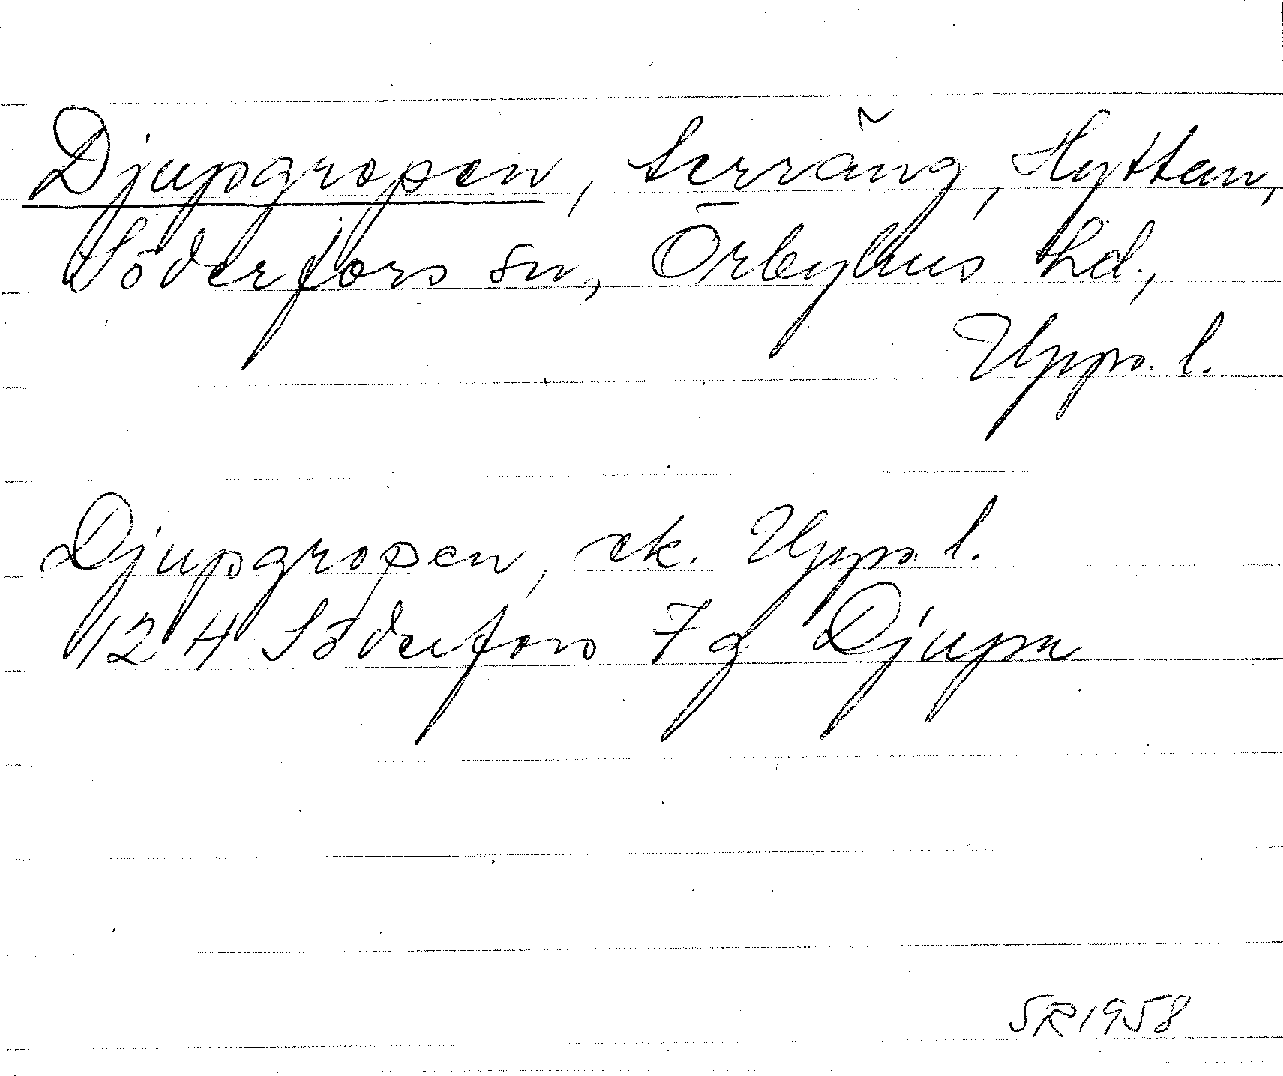 Djupgropen, terräng, Hyttan,
Söderfors sn, Örbyhus hd.,
Upps. l.
Djupgropen, ek. Upps. l.
12 H Söderfors 7 g Djupa
SR 1958